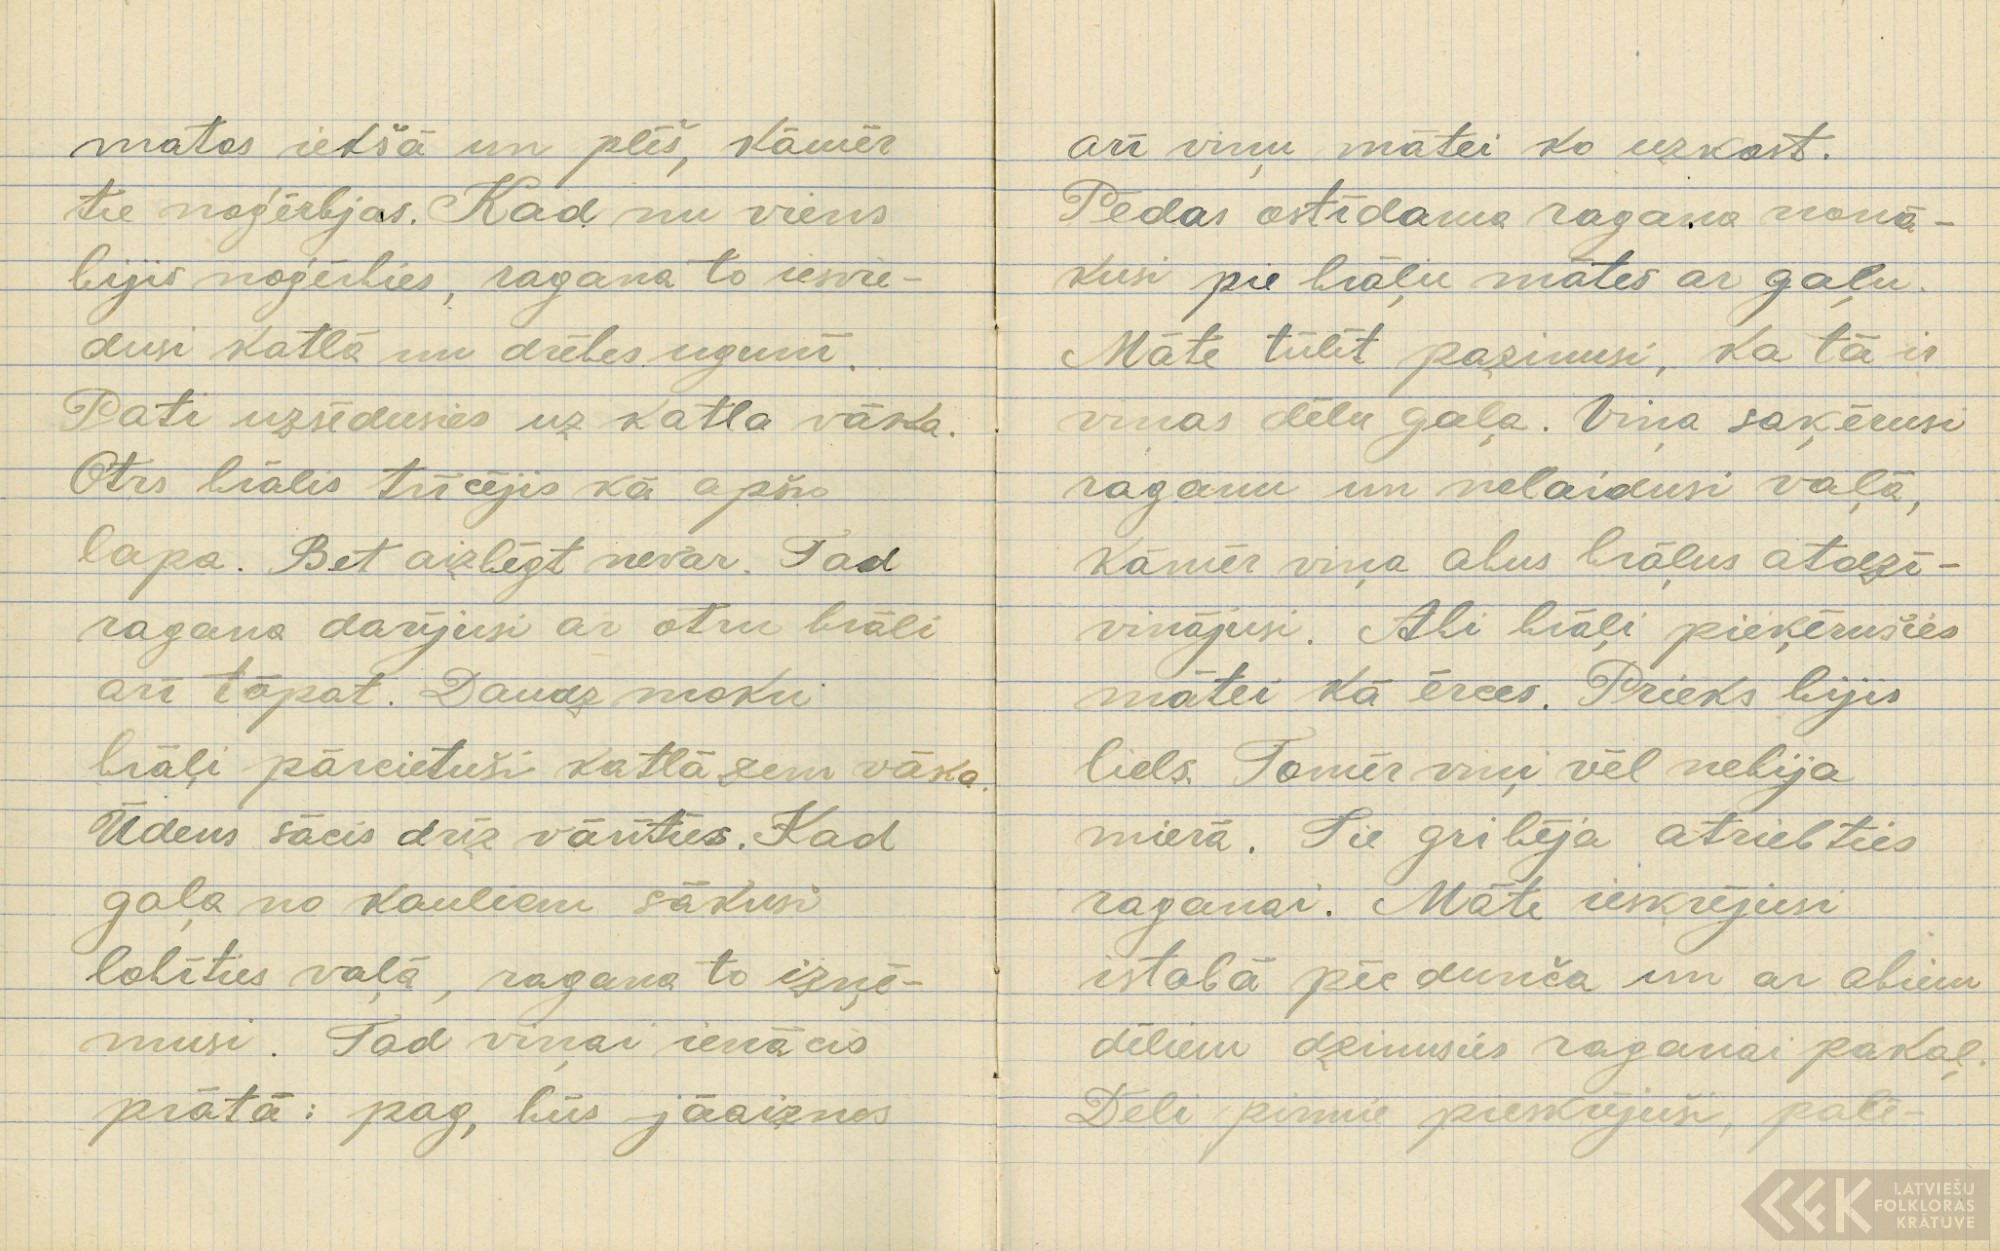 matos iekšā un plēš, kāmēr
tie noģērbjas. Kad nu viens
bijis noģērbies, ragana to iesvie-
dusi katlā un drēbes ugunī.
Pati uzsēdusies uz katla vāka.
Otrs brālis trīcējis kā apšu
lapa. Bet aizbēgt nevar. Tad
ragana darījusi ar otru brāli
arī tāpat. Daudz moku
brāļi pārcietuši katlā zem vāka.
Ūdens sācis drīz vārīties. Kad
gaļa no kauliem sākusi
lobīties vaļā, ragana to izņē-
musi. Tad viņai ienācis
prātā: pag, būs jāaiznes
arī viņu mātei ko uzkost.
Pēdas ostīdama ragana nonā-
kusi pie brāļu mātes ar gaļu.
Māte tūlīt pazinusi, ka tā ir
viņas dēlu gaļa. Viņa saķērusi
raganu un nelaidusi vaļā,
kāmēr viņa abus brāļus atdzī-
vinājusi. Abi brāļi pieķērušies
mātei kā ērces. Prieks bijis
liels. Tomēr viņi vēl nebija
mierā. Tie gribēja atriebties
raganai. Māte ieskrējusi
istabā pēc dunča un ar abiem
dēliem dzinusies raganai pakaļ.
Dēli pirmie pieskrējuši, palē-
LATVIEŠU
FOLKLORAS
KRĀTUVE